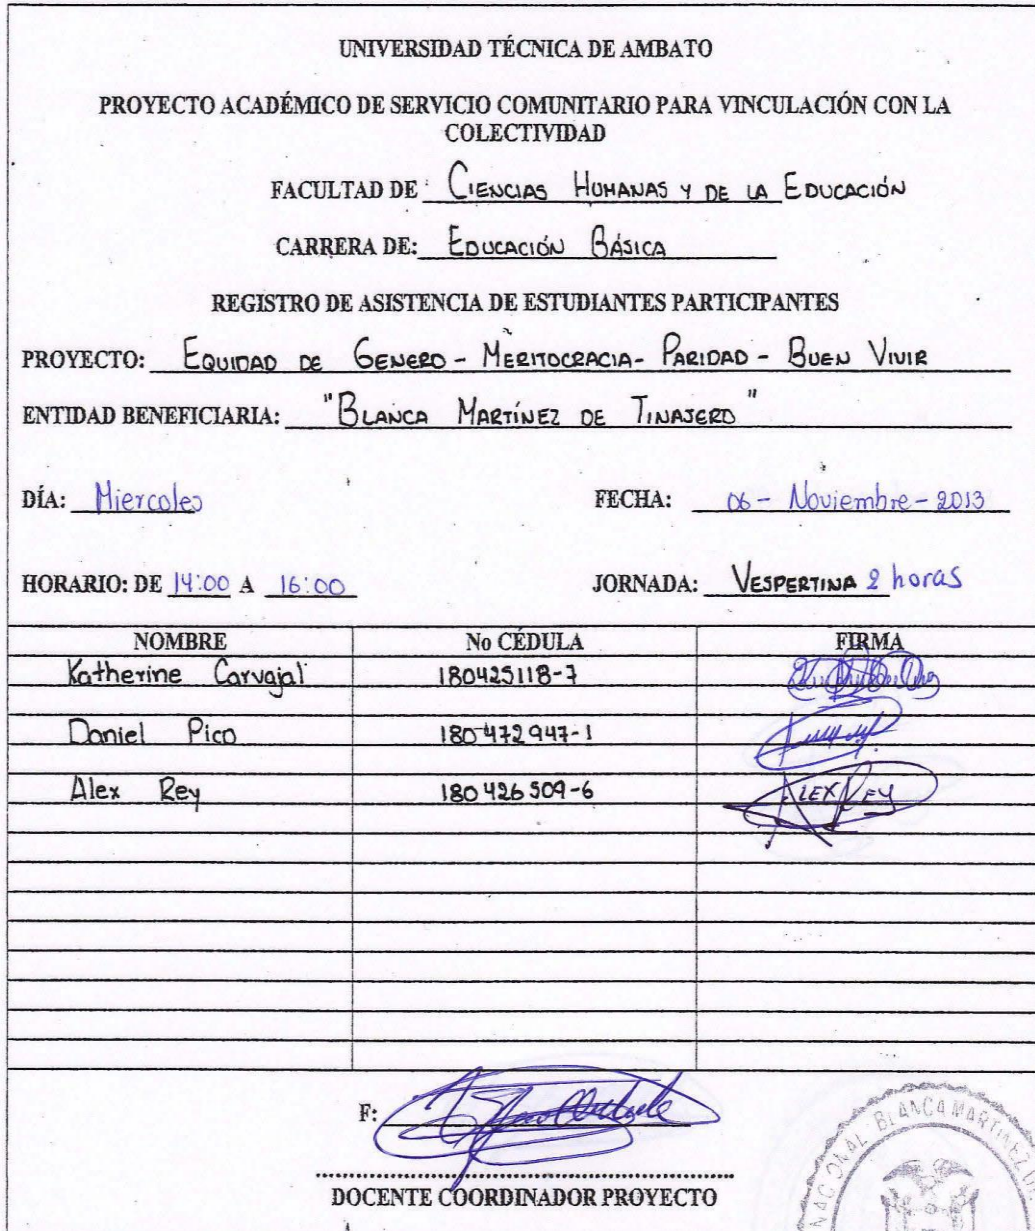 UNIVERSIDAD TÉCNICA DE AMBATO
PROYECTO ACADÉMICO DE SERVICIO COMUNITARIO PARA VINCULACIÓN CON LA
COLECTIVIDAD
FACULTAD DE CIENCIAS HUMANAS Y DE LA EDUCACIÓN
CARRERA DE: EDUCACIÓN BÁSICA
REGISTRO DE ASISTENCIA DE ESTUDIANTES PARTICIPANTES
PROYECTO: EQUIDAD DE GENERO - MERITOCRACIA - PARIDAD - BUEN VIVIR
ENTIDAD BENEFICIARIA: "BLANCA MARTÍNEZ DE TINAJERO"
DÍA: Miercoles FECHA: 06 - Noviembre - 2013
HORARIO: DE 14:00 A 16:00 JORNADA: VESPERTINA 2 horas
NOMBRE No CÉDULA FIRMA
Katherine Carvajal 180425118-7
Daniel Pico 180472947-1
Alex Rey 180426509-6 ALEX REY
F:
DOCENTE COORDINADOR PROYECTO
BLANCA MARTINEZ